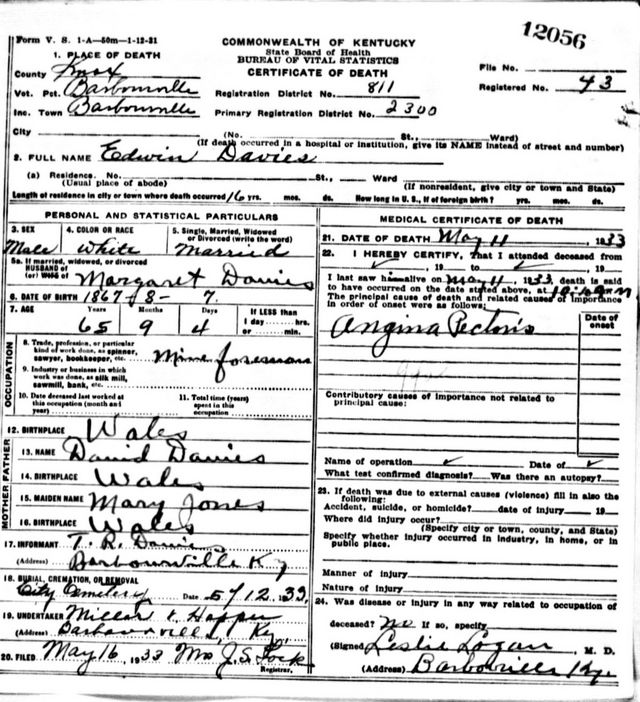 12056
Form V. S. 1-A—50m—1-12-31
COMMONWEALTH OF KENTUCKY
State Board of Health
BUREAU OF VITAL STATISTICS
CERTIFICATE OF DEATH
1. PLACE OF DEATH
County Knox
Vot. Pct. Barbourville
Inc. Town Barbourville
Registration District No. 811
Primary Registration District No. 2300
File No.
Registered No. 43
City (No. St., Ward)
(If death occurred in a hospital or institution, give its NAME instead of street and number)
2. FULL NAME Edwin Davies
(a) Residence. No. St., Ward
(Usual place of abode) (If nonresident, give city or town and State)
Length of residence in city or town where death occurred 16 yrs. mos. ds. How long in U. S., if of foreign birth? yrs. mos. ds.
PERSONAL AND STATISTICAL PARTICULARS
3. SEX 4. COLOR OR RACE 5. Single, Married, Widowed
or Divorced (write the word)
Male White Married
5a. If married, widowed, or divorced
HUSBAND of
(or) WIFE of Margaret Davies
6. DATE OF BIRTH 1867 - 8 - 7.
7. AGE Years Months Days If LESS than
1 day hrs.
or min.
65 9 4
OCCUPATION
8. Trade, profession, or particular
kind of work done, as spinner,
sawyer, bookkeeper, etc. Mine foreman
9. Industry or business in which
work was done, as silk mill,
sawmill, bank, etc.
10. Date deceased last worked at
this occupation (month and
year)
11. Total time (years)
spent in this
occupation
FATHER
12. BIRTHPLACE Wales
13. NAME David Davies
14. BIRTHPLACE Wales
MOTHER
15. MAIDEN NAME Mary Jones
16. BIRTHPLACE Wales
17. INFORMANT T. R. Davies
(Address) Barbourville Ky
18. BURIAL, CREMATION, OR REMOVAL
City Cemetery Date 5/12 33,
19. UNDERTAKER Miller &
(Address) Barbourville, Ky.
20. FILED May 16, 1933 Mrs J. S. Lock
Registrar.
MEDICAL CERTIFICATE OF DEATH
21. DATE OF DEATH May 11, 1933
22. I HEREBY CERTIFY, That I attended deceased from
, 19 to , 19
I last saw him alive on May 11 1933, death is said
to have occurred on the date stated above, at
The principal cause of death and related causes of importance
in order of onset were as follows:
Date of
onset
Angina Pectoris
Contributory causes of importance not related to
principal cause:
Name of operation ✓ Date of ✓
What test confirmed diagnosis? Was there an autopsy?
23. If death was due to external causes (violence) fill in also the
following:
Accident, suicide, or homicide? date of injury 19
Where did injury occur?
(Specify city or town, county, and State)
Specify whether injury occurred in industry, in home, or in
public place.
Manner of injury
Nature of injury
24. Was disease or injury in any way related to occupation of
deceased? No If so, specify
(Signed Leslie Logan, M. D.
(Address) Barbourville Ky.